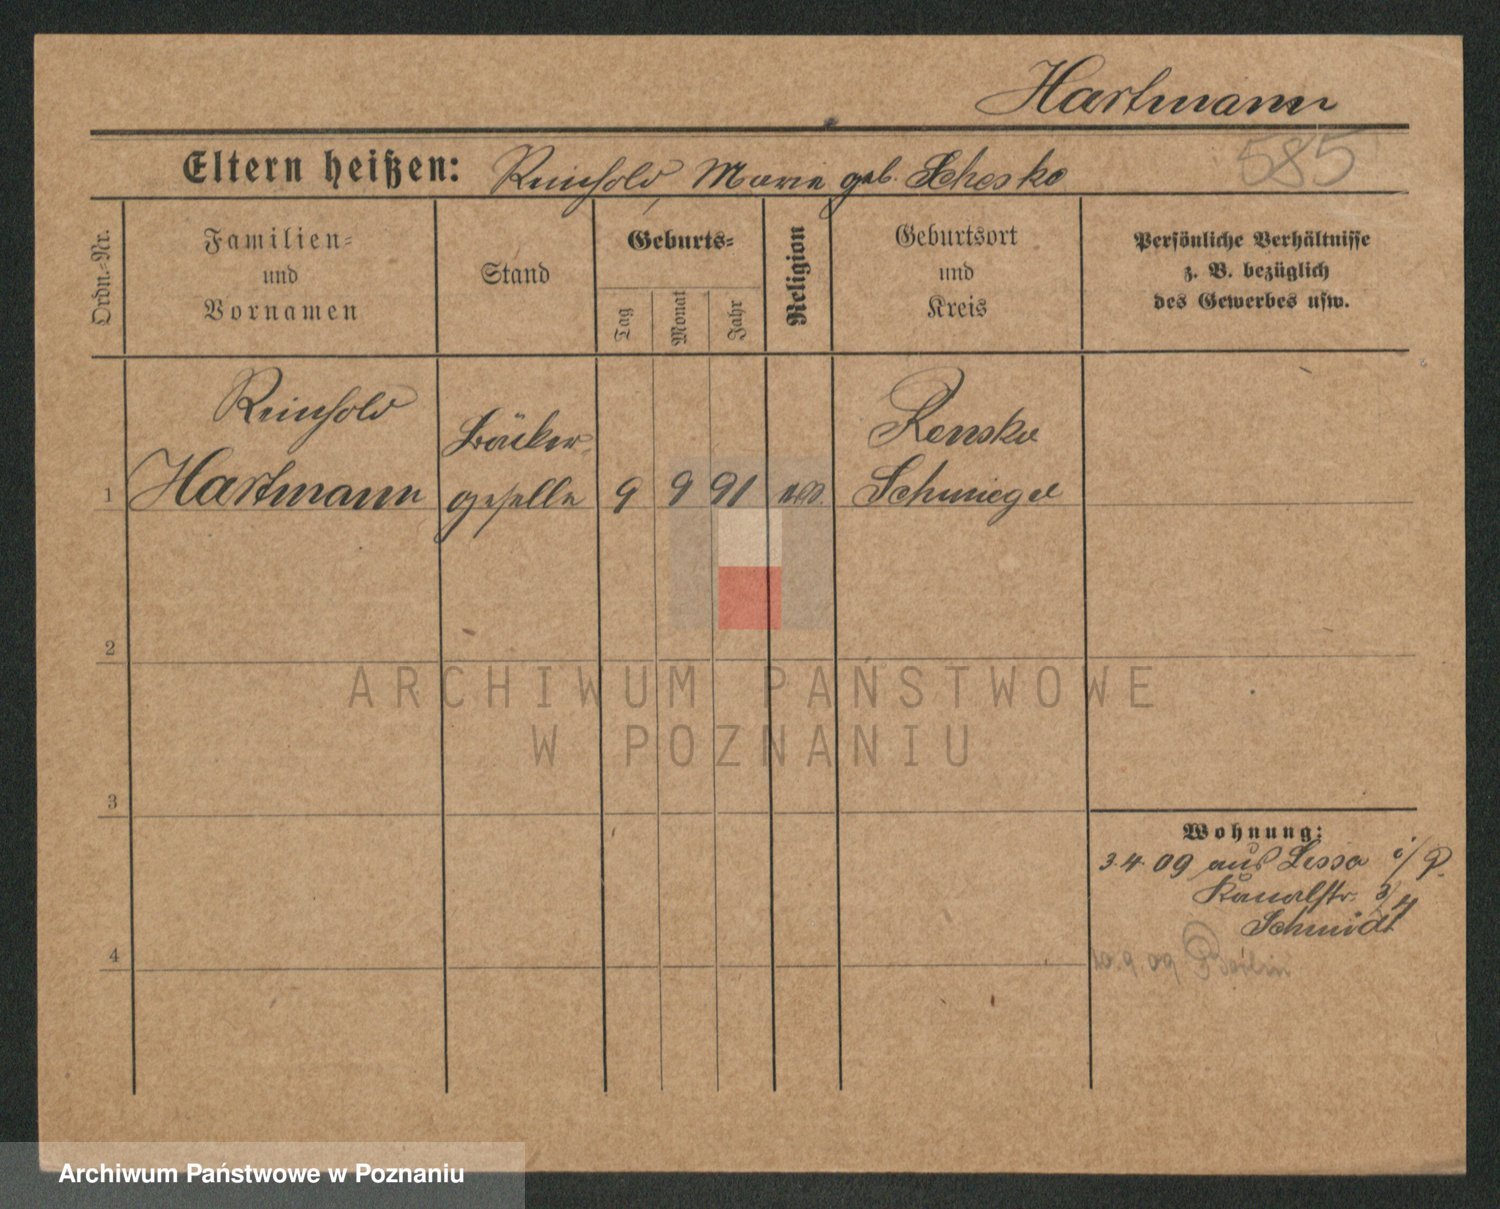 Hartmann
585
Eltern heißen: Reinhold, Marie geb. Schesko
Ordn.-Nr.
Familien-
und
Vornamen
Stand
Geburts-
Tag
Monat
Jahr
Religion
Geburtsort
und
Kreis
Persönliche Verhältnisse
z. B. bezüglich
des Gewerbes usw.
Reinhold
Bäcker-
Rensko
1 Hartmann geselle 9 9 91 Schmiegel
2
ARCHIWUM PAŃSTWOWE
W POZNANIU
3
Wohnung:
3.4.09 aus Lissa i/P.
Kanalstr. 3/4
Schmidt
4
10.9.09 Berlin
Archiwum Państwowe w Poznaniu